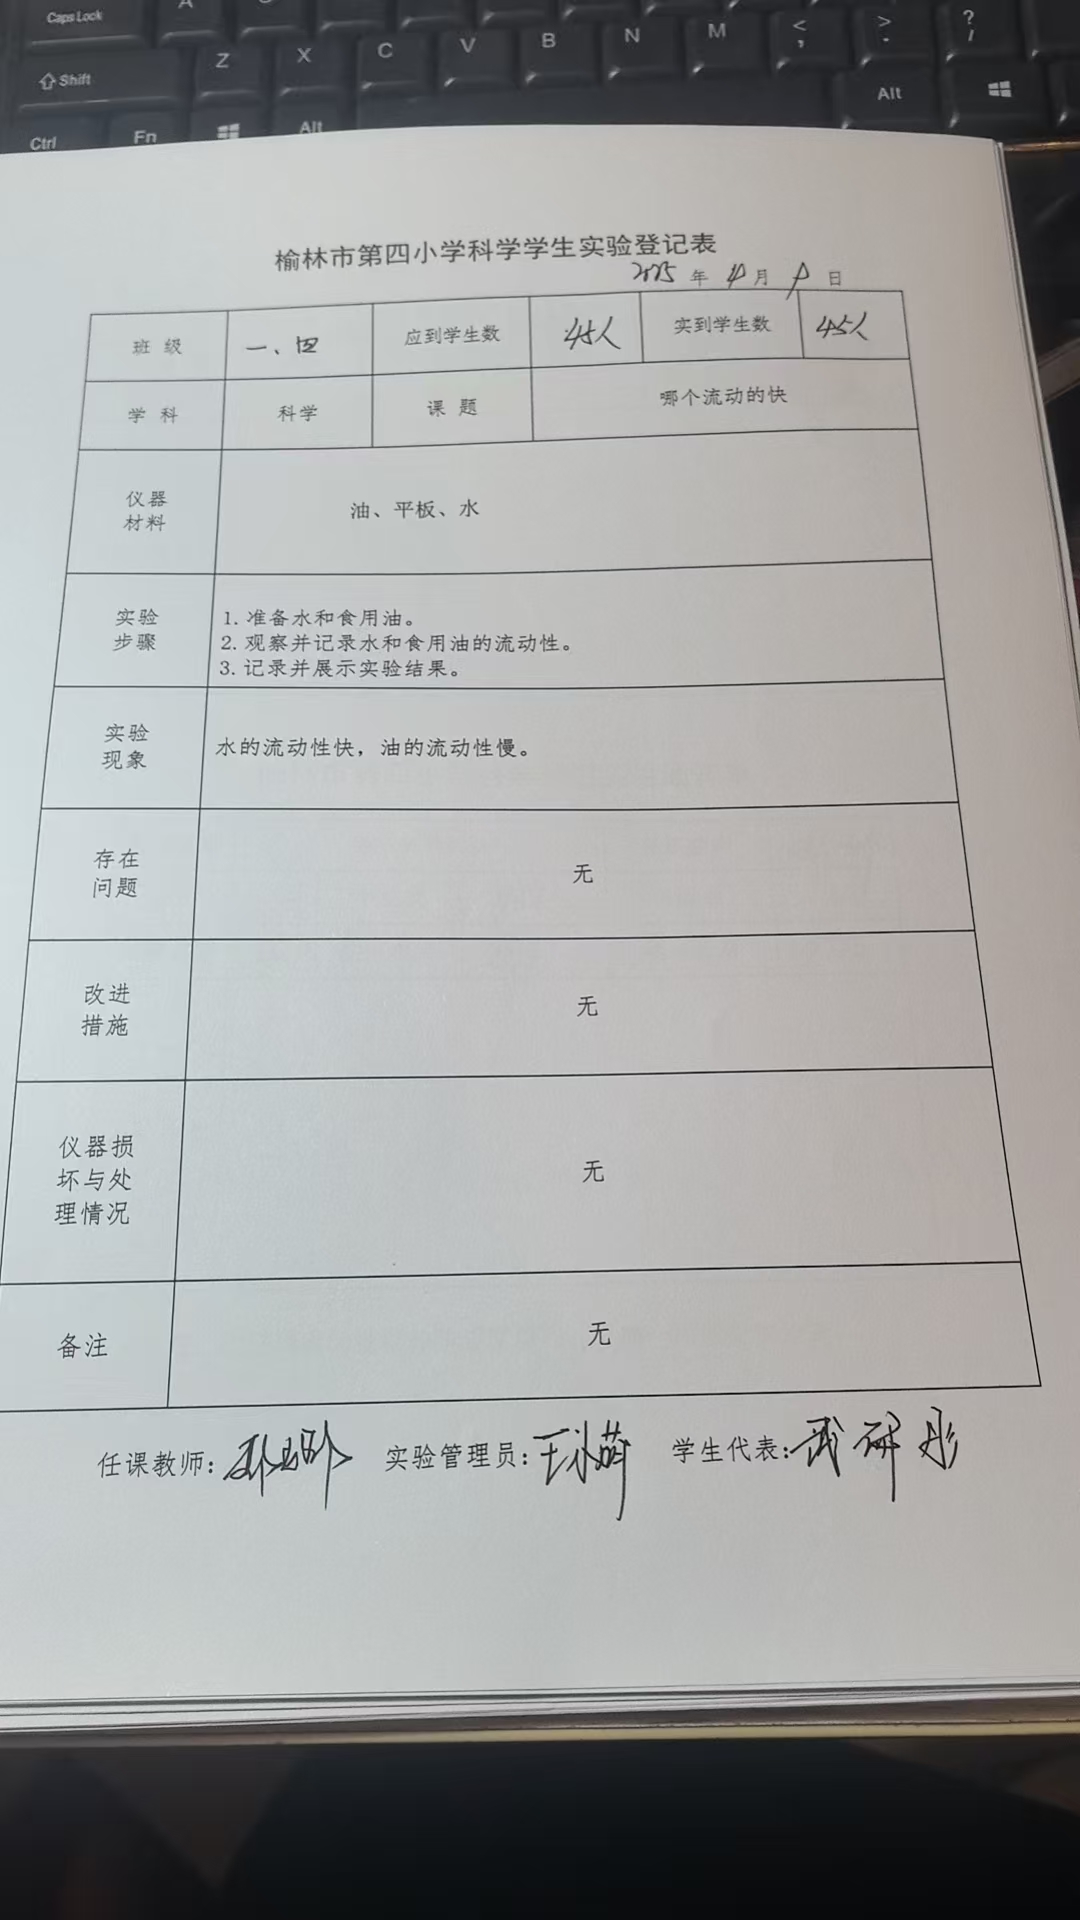 Caps Lock
A
Shift
Z X C V B N M < , > . ? /
Ctrl Fn Alt
Alt
榆林市第四小学科学学生实验登记表
2025 年 4 月 日
班 级 一、四 应到学生数 45人 实到学生数 45人
学 科 科学 课 题 哪个流动的快
仪器
材料
油、平板、水
实验
步骤
1. 准备水和食用油。
2. 观察并记录水和食用油的流动性。
3. 记录并展示实验结果。
实验
现象
水的流动性快，油的流动性慢。
存在
问题
无
改进
措施
无
仪器损
坏与处
理情况
无
备注
无
任课教师： 实验管理员：王冰萌 学生代表：武研彤